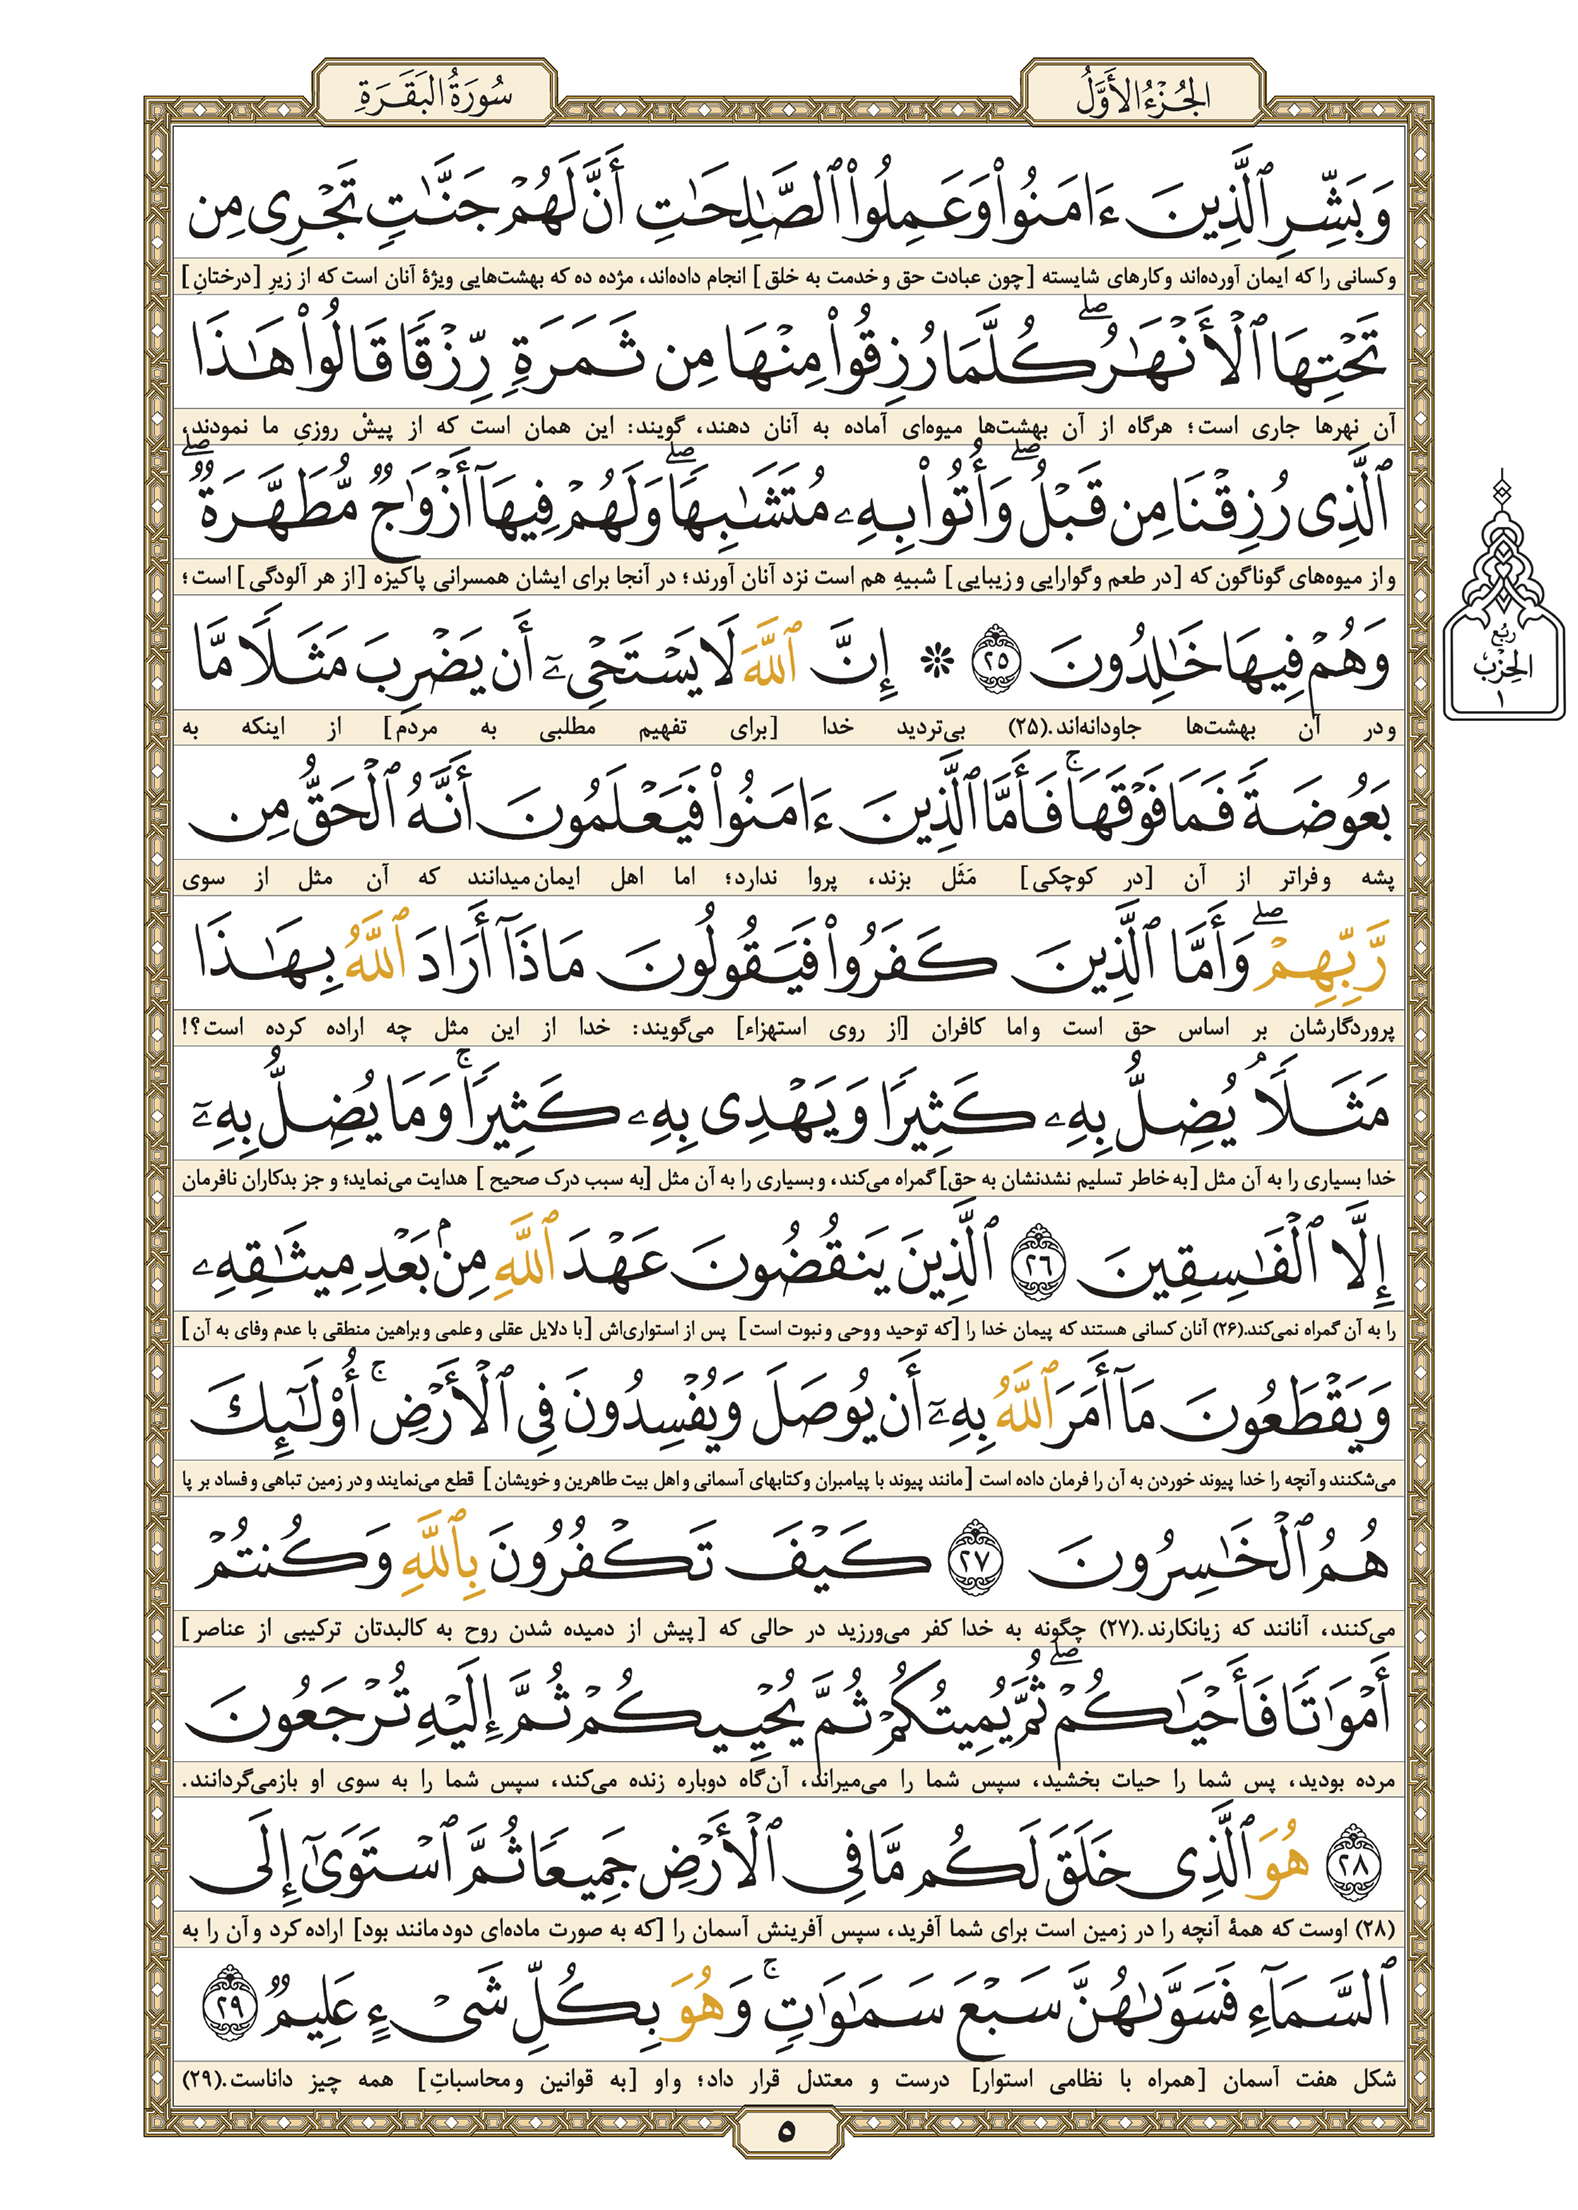 الجُزْءُ الأَوَّلُ
سُورَةُ البَقَرَةِ
وَبَشِّرِ ٱلَّذِينَ ءَامَنُواْ وَعَمِلُواْ ٱلصَّـٰلِحَـٰتِ أَنَّ لَهُمْ جَنَّـٰتٍ تَجْرِى مِن
وکسانی را که ایمان آورده‌اند وکارهای شایسته [چون عبادت حق و خدمت به خلق] انجام داده‌اند، مژده ده که بهشت‌هایی ویژهٔ آنان است که از زیرِ [درختانِ]
تَحْتِهَا ٱلْأَنْهَـٰرُ ۖ كُلَّمَا رُزِقُواْ مِنْهَا مِن ثَمَرَةٍ رِّزْقًا قَالُواْ هَـٰذَا
آن نهرها جاری است؛ هرگاه از آن بهشت‌ها میوه‌ای آماده به آنان دهند، گویند: این همان است که از پیشْ روزیِ ما نمودند،
ٱلَّذِى رُزِقْنَا مِن قَبْلُ ۖ وَأُتُواْ بِهِۦ مُتَشَـٰبِهًا ۖ وَلَهُمْ فِيهَآ أَزْوَٰجٌ مُّطَهَّرَةٌ ۖ
و از میوه‌های گوناگون که [در طعم وگوارایی و زیبایی] شبیهِ هم است نزد آنان آورند؛ در آنجا برای ایشان همسرانی پاکیزه [از هر آلودگی] است؛
وَهُمْ فِيهَا خَـٰلِدُونَ ٢٥ ۞ إِنَّ ٱللَّهَ لَا يَسْتَحْىِۦٓ أَن يَضْرِبَ مَثَلًا مَّا
و در آن بهشت‌ها جاودانه‌اند.(۲۵) بی‌تردید خدا [برای تفهیم مطلبی به مردم] از اینکه به
بَعُوضَةً فَمَا فَوْقَهَا ۚ فَأَمَّا ٱلَّذِينَ ءَامَنُواْ فَيَعْلَمُونَ أَنَّهُ ٱلْحَقُّ مِن
پشه وفراتر از آن [در کوچکی] مَثَل بزند، پروا ندارد؛ اما اهل ایمان میدانند که آن مثل از سوی
رَّبِّهِمْ ۖ وَأَمَّا ٱلَّذِينَ كَفَرُواْ فَيَقُولُونَ مَاذَآ أَرَادَ ٱللَّهُ بِهَـٰذَا
پروردگارشان بر اساس حق است واما کافران [از روی استهزاء] می‌گویند: خدا از این مثل چه اراده کرده است؟!
مَثَلًا ۘ يُضِلُّ بِهِۦ كَثِيرًا وَيَهْدِى بِهِۦ كَثِيرًا ۚ وَمَا يُضِلُّ بِهِۦٓ
خدا بسیاری را به آن مثل [به خاطر تسلیم نشدنشان به حق] گمراه می‌کند، وبسیاری را به آن مثل [به سبب درک صحیح] هدایت می‌نماید؛ و جز بدکاران نافرمان
إِلَّا ٱلْفَـٰسِقِينَ ٢٦ ٱلَّذِينَ يَنقُضُونَ عَهْدَ ٱللَّهِ مِنۢ بَعْدِ مِيثَـٰقِهِۦ
را به آن گمراه نمی‌کند.(۲۶) آنان کسانی هستند که پیمان خدا را [که توحید و وحی و نبوت است] پس از استواری‌اش [با دلایل عقلی و علمی وبراهین منطقی با عدم وفای به آن]
وَيَقْطَعُونَ مَآ أَمَرَ ٱللَّهُ بِهِۦٓ أَن يُوصَلَ وَيُفْسِدُونَ فِى ٱلْأَرْضِ ۚ أُوْلَـٰٓئِكَ
می‌شکنند وآنچه را خدا پیوند خوردن به آن را فرمان داده است [مانند پیوند با پیامبران وکتابهای آسمانی واهل بیت طاهرین وخویشان] قطع می‌نمایند و در زمین تباهی وفساد بر پا
هُمُ ٱلْخَـٰسِرُونَ ٢٧ كَيْفَ تَكْفُرُونَ بِٱللَّهِ وَكُنتُمْ
می‌کنند، آنانند که زیانکارند.(۲۷) چگونه به خدا کفر می‌ورزید در حالی که [پیش از دمیده شدن روح به کالبدتان ترکیبی از عناصر]
أَمْوَٰتًا فَأَحْيَـٰكُمْ ۖ ثُمَّ يُمِيتُكُمْ ثُمَّ يُحْيِيكُمْ ثُمَّ إِلَيْهِ تُرْجَعُونَ
مرده بودید، پس شما را حیات بخشید، سپس شما را می‌میراند، آن‌گاه دوباره زنده می‌کند، سپس شما را به سوی او بازمی‌گردانند.
٢٨ هُوَ ٱلَّذِى خَلَقَ لَكُم مَّا فِى ٱلْأَرْضِ جَمِيعًا ثُمَّ ٱسْتَوَىٰٓ إِلَى
(۲۸) اوست که همهٔ آنچه را در زمین است برای شما آفرید، سپس آفرینش آسمان را [که به صورت ماده‌ای دود مانند بود] اراده کرد وآن را به
ٱلسَّمَآءِ فَسَوَّىٰهُنَّ سَبْعَ سَمَـٰوَٰتٍ ۚ وَهُوَ بِكُلِّ شَىْءٍ عَلِيمٌ ٢٩
شکل هفت آسمان [همراه با نظامی استوار] درست و معتدل قرار داد؛ و او [به قوانین ومحاسباتِ] همه چیز داناست.(۲۹)
رُبْعُ
الحِزْبِ
١
٥